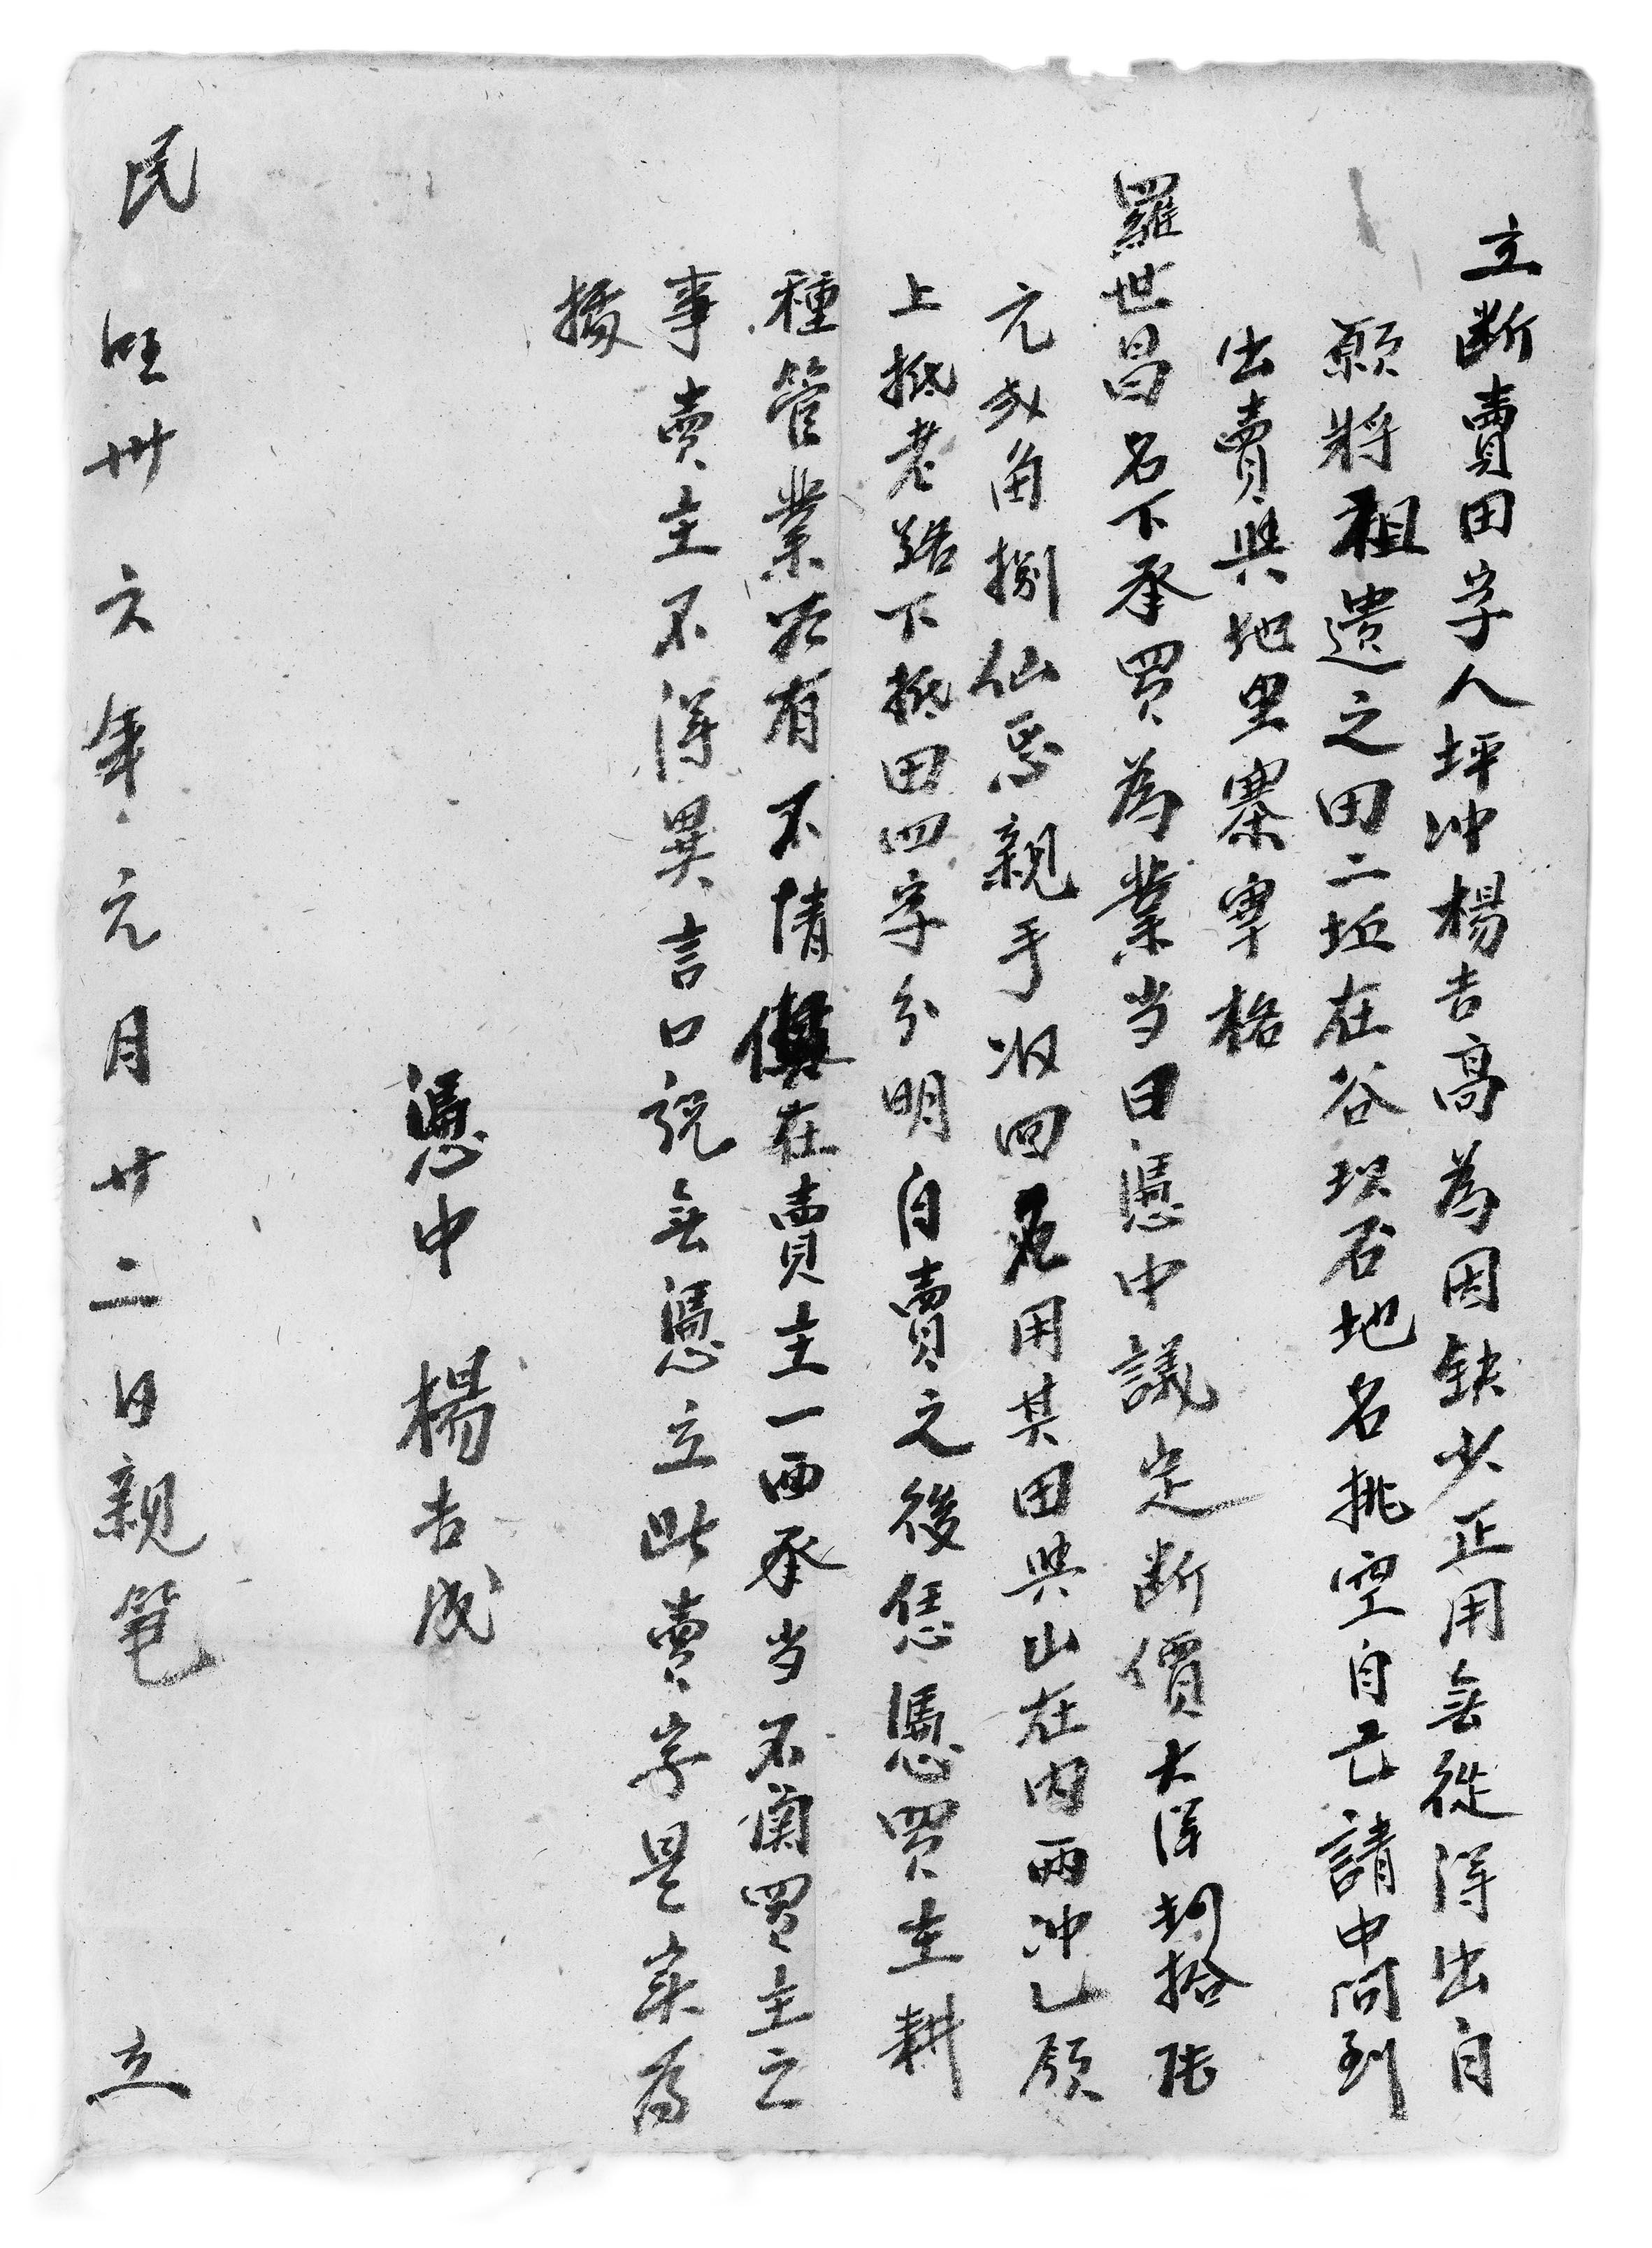 立断賣田字人坪冲楊吉高為因缺少正用無從得出自
願將祖遺之田二坵在谷坝否地名挑空自己請中问到
出賣與地里寨寕格
羅世昌名下承買為業当日憑中議定断價大洋捌拾陆
元弍角捌仙正親手收回应用其田與山在内両冲乚領
上抵老路下抵田四字分明自賣之後恁憑買主耕
種管業若有不清俱在賣主一面承当不関買主之
事賣主不得異言口説無憑立此賣字是实為
據
憑中 楊吉成
民囯卅六年元月廿二日親笔 立